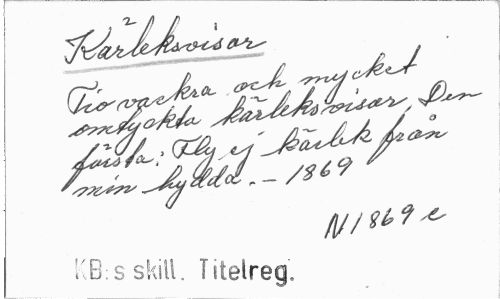 Kärleksvisor
Tio vackra och mycket
omtyckta kärleksvisor. Den
första: Fly ej kärlek från
min hydda. - 1869
N1869 c
KB:s skill. Titelreg.